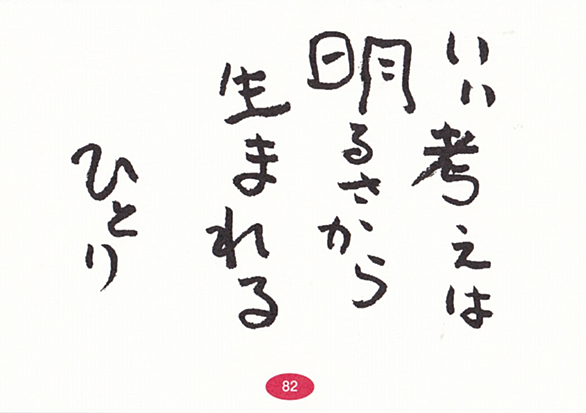 いい考えは
明るさから
生まれる
ひとり
82